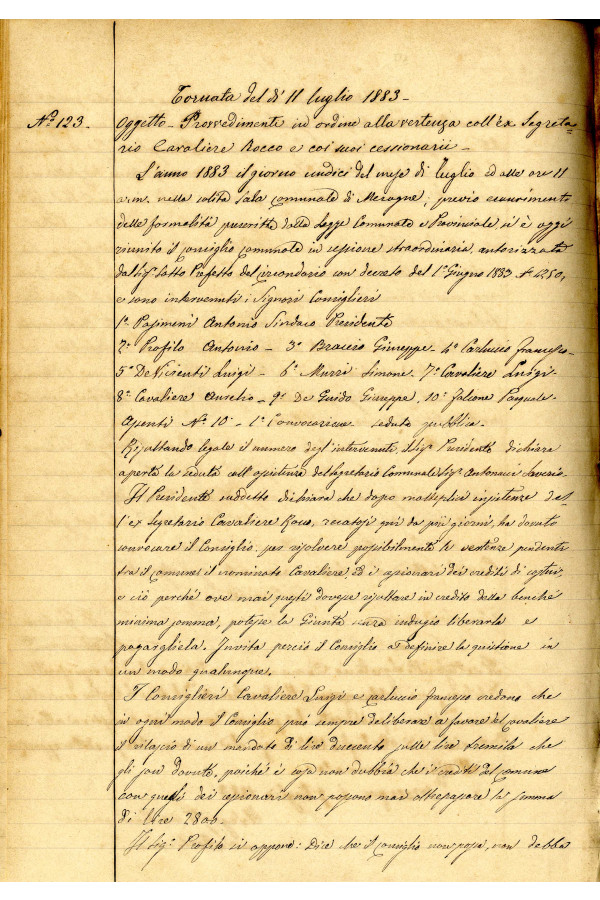 Tornata del dì 11 luglio 1883 -
Nº 123 -
Oggetto - Provvedimenti in ordine alla vertenza coll'ex Segreta=
rio Cavaliere Rocco e coi suoi cessionarii -
L'anno 1883 il giorno undici del mese di luglio ed alle ore 11
a.m. nella solita sala comunale di Mesagne; previo esaurimento
delle formalità prescritte dalla Legge Comunale e Provinciale si è oggi
riunito il consiglio comunale in sessione straordinaria, autorizzata
dal Sigr Sotto Prefetto del circondario con decreto del 1º Giugno 1883 Nº 1250,
e sono intervenuti i Signori Consiglieri
1º Antonio Sindaco Presidente
2º Profilo Antonio - 3º Braccio Giuseppe - 4º Carluccio Francesco -
5º De Vicenti Luigi - 6º Murra Simone - 7º Cavaliere Luigi -
8º Cavaliere Aurelio - 9º De Guido Giuseppe, 10º Falcone Pasquale -
Assenti Nº 10 - 1ª Convocazione seduta pubblica -
Risultando legale il numero degl'intervenuti, il Sigr Presidente dichiara
aperta la seduta coll'assistenza del Segretario Comunale Sigr Antonucci Saverio -
Il Presidente suddetto dichiara che dopo molteplici insistenze del=
l'ex Segretario Cavaliere Rocco, recatosi qui da più giorni, ha dovuto
convocare il Consiglio, per risolvere possibilmente le vertenze pendenti
tra il comune, il nominato Cavaliere, ed i cessionari dei crediti di costui,
e ciò perché ove mai questi dovesse risultare in credito della benché
minima somma, potesse la Giunta senza indugio liberarla e
pagargliela. Invita perciò il Consiglio a definire la quistione in
un modo qualunque.
I Consiglieri Cavaliere Luigi e Carluccio Francesco credono che
in ogni modo il Consiglio può sempre deliberare a favore del Cavaliere
il rilascio di un mandato di lire duecento sulle lire tremila che
gli son dovute, poiché è cosa non dubbia che i crediti del comune
con quelli dei cessionari non possono mai oltrepassare la somma
di lire 2800.
Il Sigr Profilo si oppone: Dice che il consiglio non possa, non debba